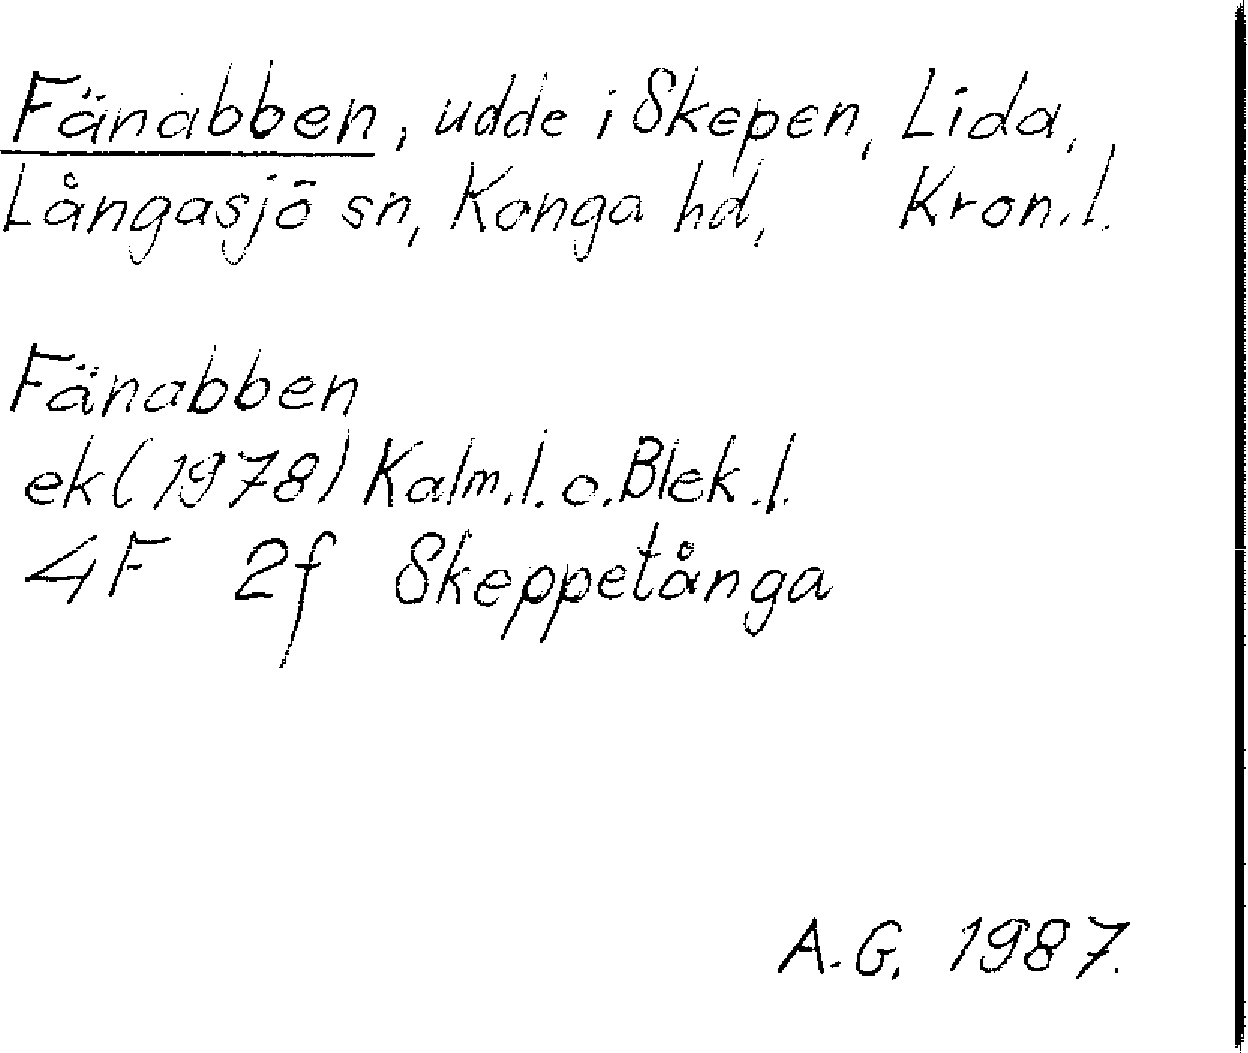 Fänabben, udde i Skepen, Lida,
Långasjö sn, Konga hd, Kron.l.
Fänabben
ek (1978) Kalm.l. o. Blek.l.
4F 2f Skeppetånga
A.G. 1987.